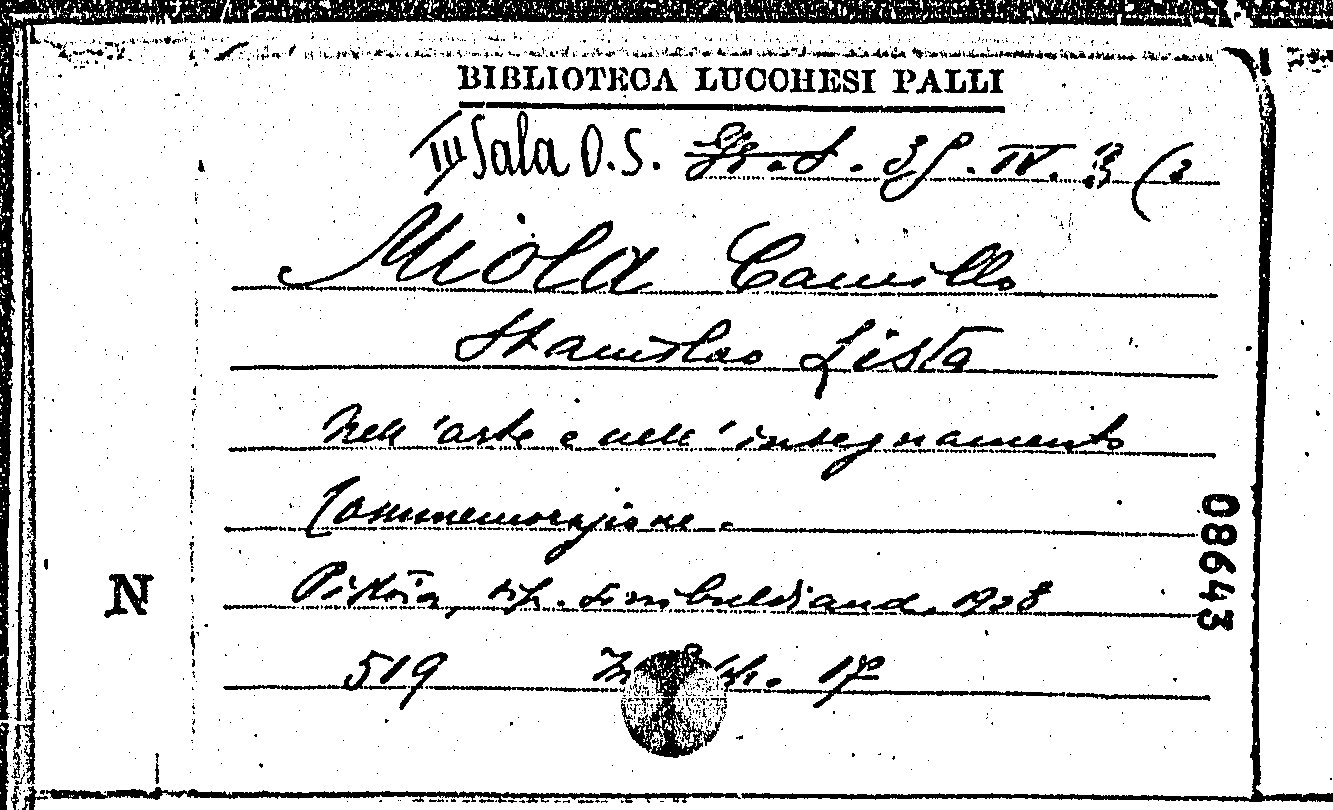 BIBLIOTECA LUCCHESI PALLI
III Sala O.S. Gr. S. 35. IV. 3 (2
Miola Camillo
Stanislao Lista
Nell'arte e nell'insegnamento
Commemorazione.
Pistoia, tip. Sinibuldiana, 1908
519 In 8° p. 17
N
08643